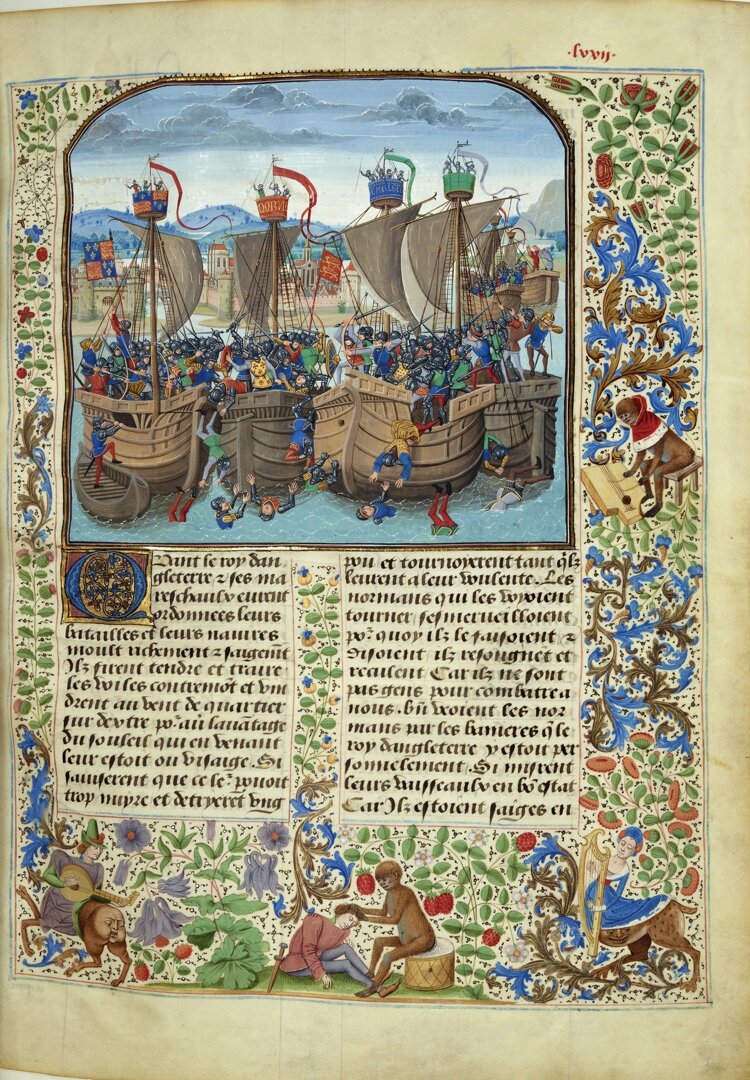 ·lxxij·
Quant le roy dan
gleterre & ses ma
reschaulx eurent
ordonnees leurs
batailles et leurs nauires
moult richement & saigemt
Ilz firent tendre et traire
les voiles contremot et vin
drent au vent de quartier
sur dextre por auoir lauantage
du souleil qui en venant
leur estoit ou visaige. Si
sauiserent que ce ler pouoit
trop nuyre et detryeret vng
pou et tournoyerent tant qlz
leurent a leur voulente. Les
normans qui les veoient
tourner sesmerueilloient
por quoy ilz le faisoient &
disoient ilz resongnet et
reculent Car ilz ne sont
pas gens pour combatre a
nous. Bn veoient les nor
mans par les banieres q le
roy dangleterre y estoit per
sonnelement. Si mirent
leurs vaisseaulx en bo estat
Car Ilz estoient saiges en